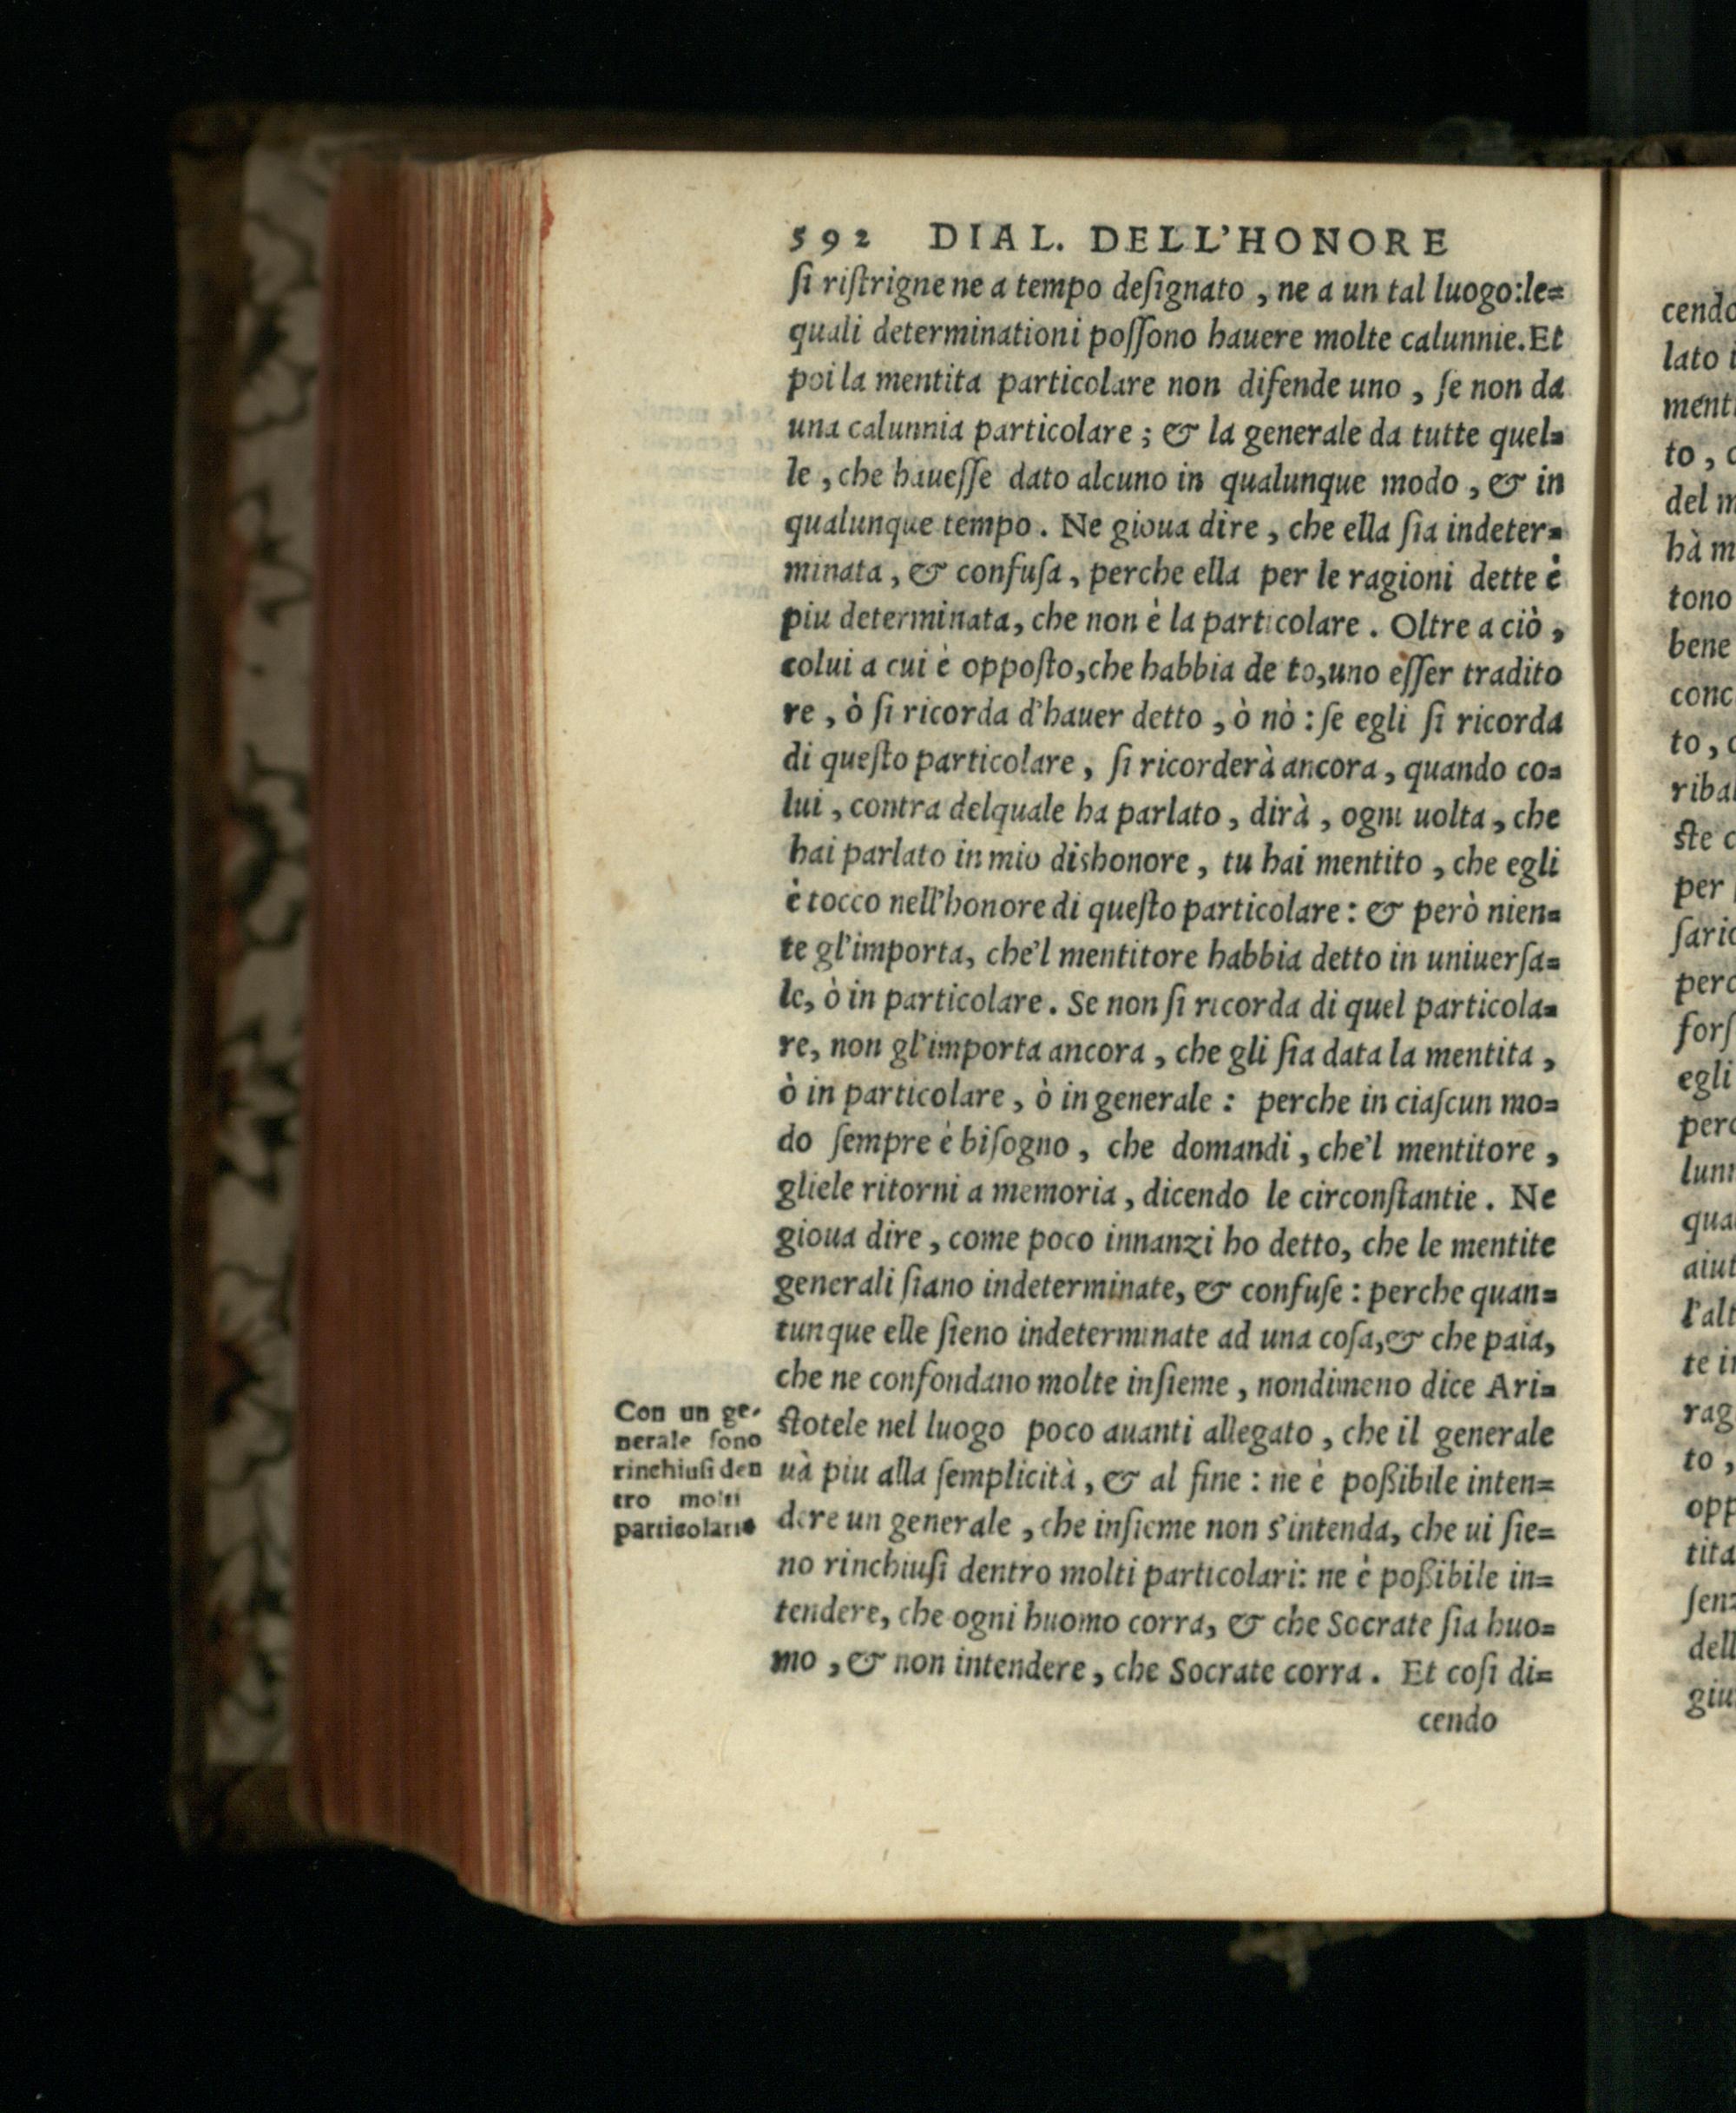 592 DIAL. DELL'HONORE
ſi riſtrigne ne a tempo deſignato, ne a un tal luogo: le=
quali determinationi poſſono hauere molte calunnie. Et
poi la mentita particolare non difende uno, ſe non da
una calunnia particolare; & la generale da tutte quel=
le, che haueſſe dato alcuno in qualunque modo, & in
qualunque tempo. Ne gioua dire, che ella ſia indeter=
minata, & confuſa, perche ella per le ragioni dette è
piu determinata, che non è la particolare. Oltre a ciò,
colui a cui è oppoſto, che habbia de to, uno eſſer tradito
re, ò ſi ricorda d'hauer detto, ò nò: ſe egli ſi ricorda
di queſto particolare, ſi ricorderà ancora, quando co=
lui, contra delquale ha parlato, dirà, ogni uolta, che
hai parlato in mio dishonore, tu hai mentito, che egli
è tocco nell'honore di queſto particolare: & però nien=
te gl'importa, che'l mentitore habbia detto in uniuerſa=
le, ò in particolare. Se non ſi ricorda di quel particola=
re, non gl'importa ancora, che gli ſia data la mentita,
ò in particolare, ò in generale: perche in ciaſcun mo=
do ſempre è biſogno, che domandi, che'l mentitore,
gliele ritorni a memoria, dicendo le circonſtantie. Ne
gioua dire, come poco innanzi ho detto, che le mentite
generali ſiano indeterminate, & confuſe: perche quan=
tunque elle ſieno indeterminate ad una coſa, & che paia,
che ne confondano molte inſieme, nondimeno dice Ari=
ſtotele nel luogo poco auanti allegato, che il generale
uà piu alla ſemplicità, & al fine: ne è poßibile inten=
dere un generale, che inſieme non s'intenda, che ui ſie=
no rinchiuſi dentro molti particolari: ne è poßibile in=
tendere, che ogni huomo corra, & che Socrate ſia huo=
mo, & non intendere, che Socrate corra. Et coſi di=
cendo
Con un ge-
nerale ſono
rinchiuſi den
tro molti
particolari.
cendo
lato
ment
to,
del m
hà m
tono
bene
conc
to,
riba
ſte c
per
ſari
perc
forſ
egli
perc
lun
qua
aiut
l'alt
te i
rag
to,
opp
tita
ſen
dell
giu